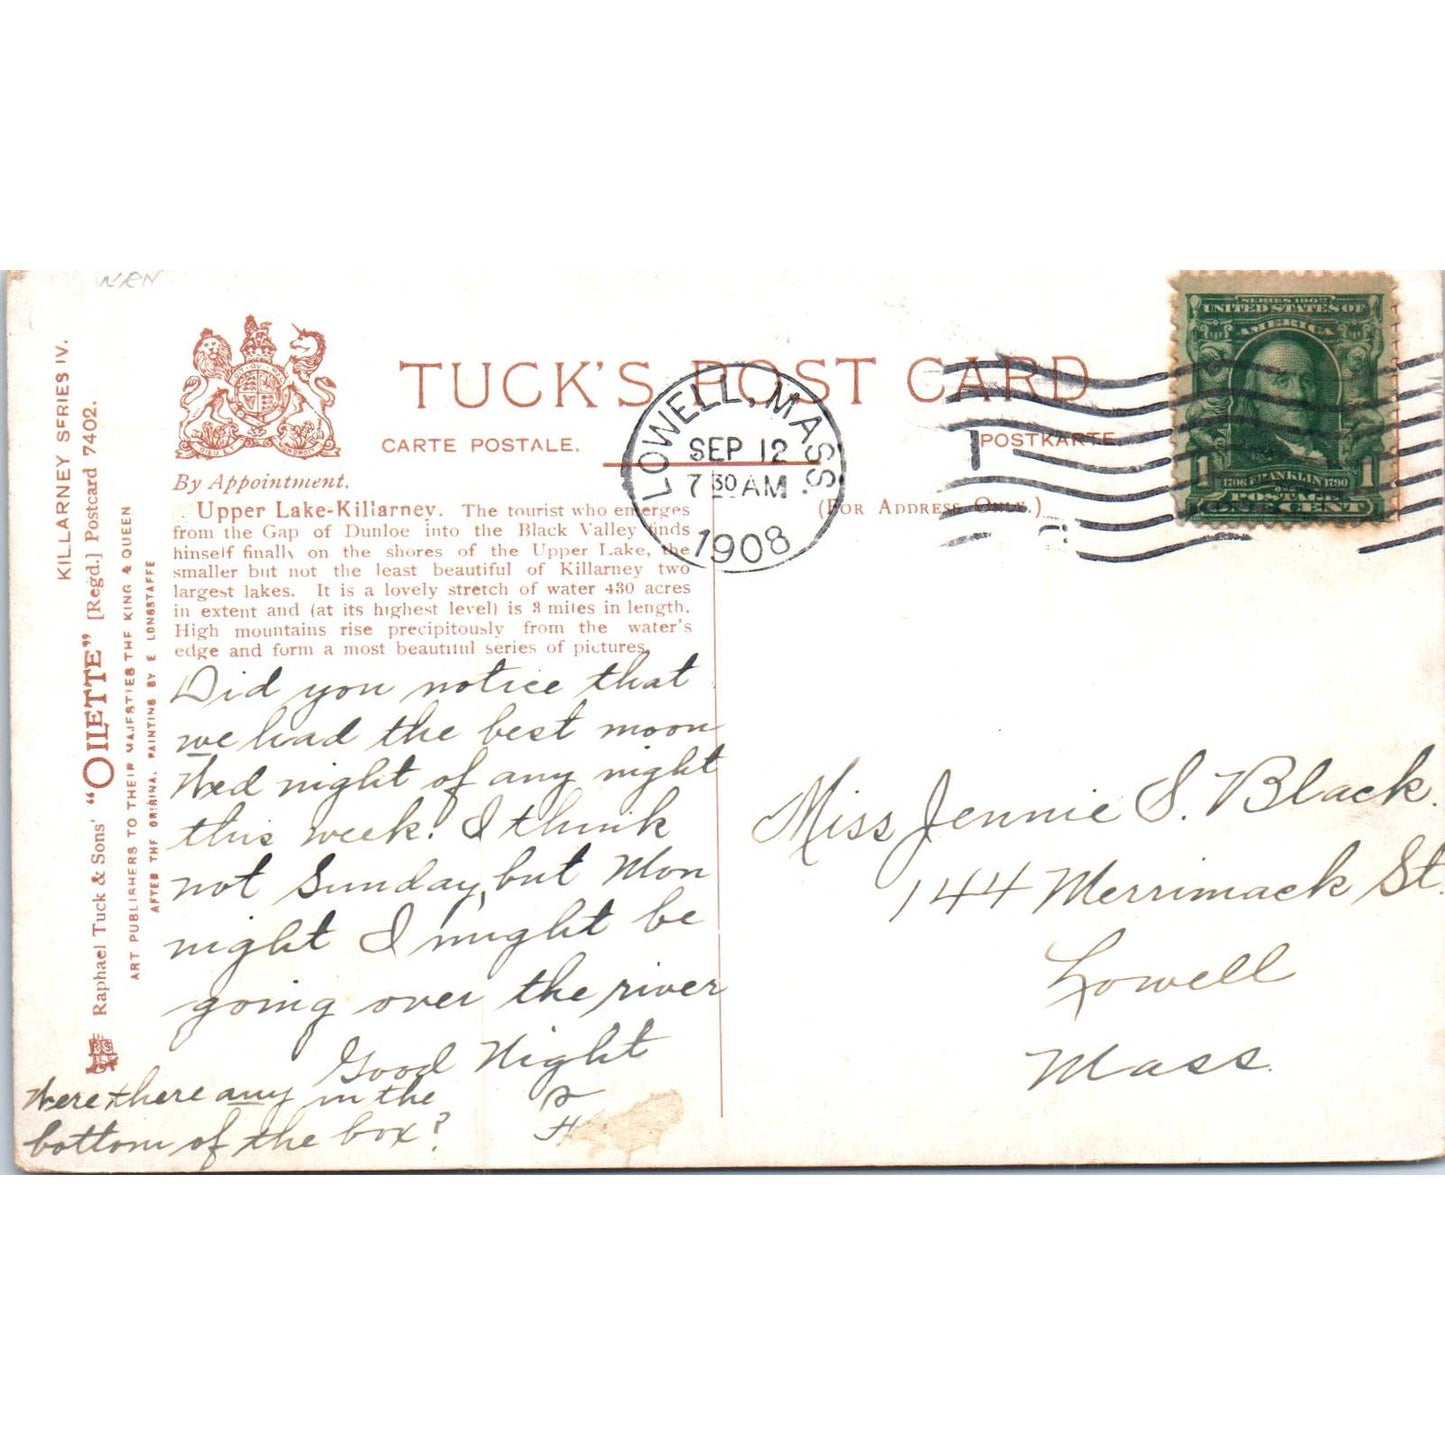 NRN
KILLARNEY SERIES IV.
Raphael Tuck & Sons' "OILETTE" [Regd.] Postcard 7402.
ART PUBLISHERS TO THEIR MAJESTIES THE KING & QUEEN
AFTER THE ORIGINAL PAINTING BY E LONGSTAFFE
TUCK'S POST CARD
CARTE POSTALE.
POSTKARTE
By Appointment.
(FOR ADDRESS ONLY.)
Upper Lake-Killarney. The tourist who emerges
from the Gap of Dunloe into the Black Valley finds
himself finally on the shores of the Upper Lake, the
smaller but not the least beautiful of Killarney two
largest lakes. It is a lovely stretch of water 430 acres
in extent and (at its highest level) is 3 miles in length.
High mountains rise precipitously from the water's
edge and form a most beautiful series of pictures.
LOWELL, MASS.
SEP 12
7 30 AM
1908
SERIES 1902
UNITED STATES OF
AMERICA
1 1
1706 FRANKLIN 1790
POSTAGE
ONE CENT
Did you notice that
we had the best moon
Wed night of any night
this week? I think
not Sunday, but Mon
night I might be
going over the river
Good Night
F
Were there any in the
bottom of the box?
Miss Jennie S. Black.
144 Merrimack St.
Lowell
Mass.